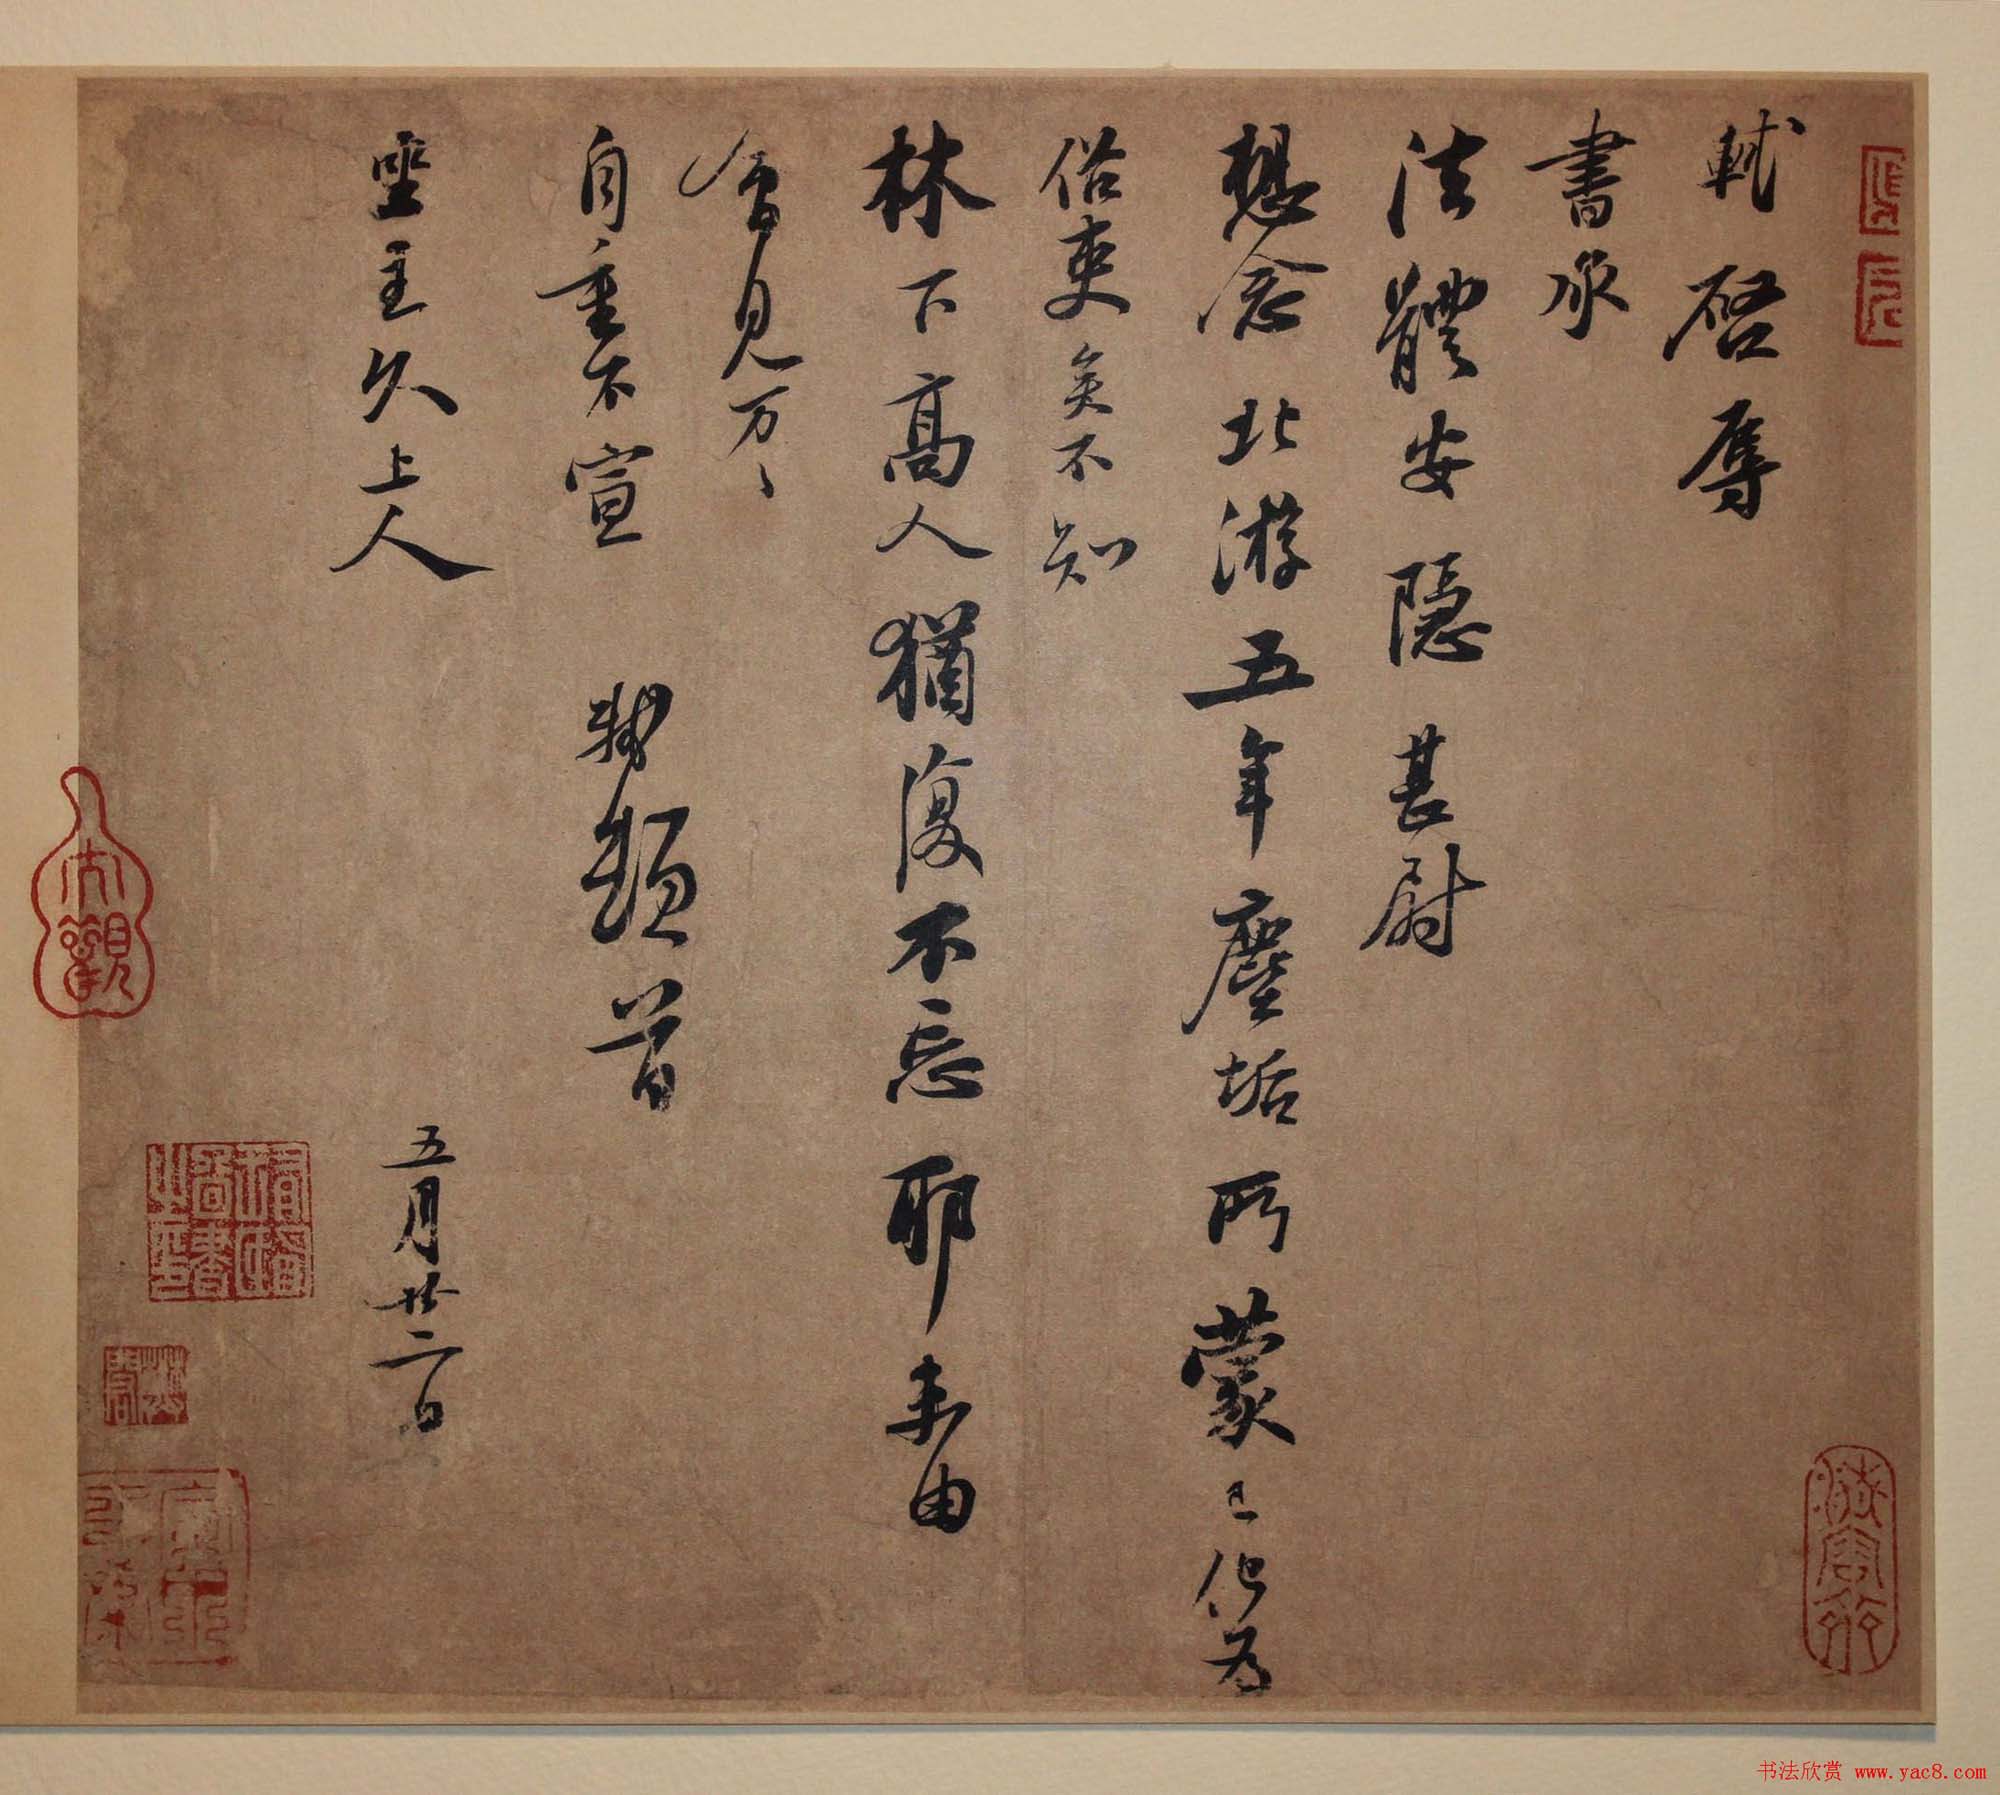 軾啓辱
書承
法體安隱甚慰
想念北游五年塵垢所蒙已化為
俗吏矣不知
林下高人猶復不忘耶未由
會見万〻
自重不宣 軾頓首
坐主久上人
五月廿二日
大觀
书法欣赏 www.yac8.com